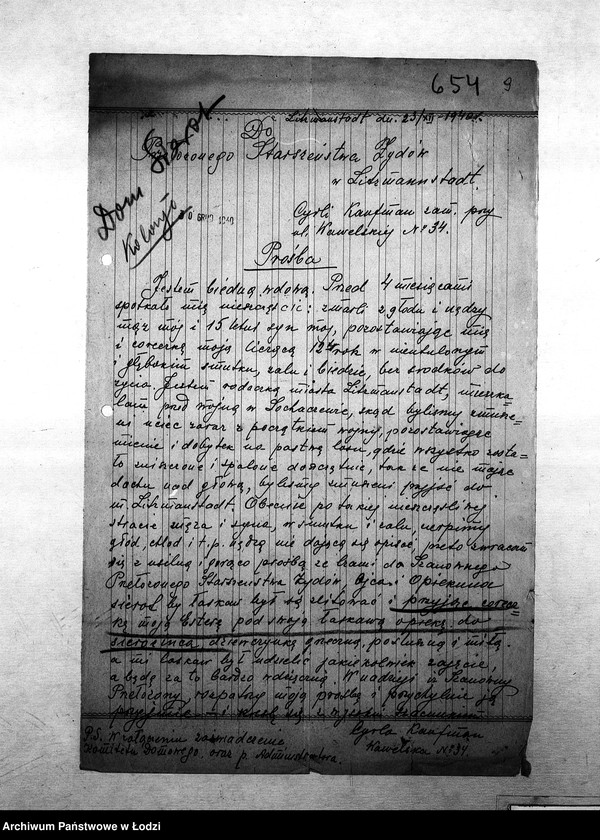 654 9
Litzmanstadt dn. 23/XII-1940r.
Do
Starszeństwa Żydów
w Litzmannstadt.
Dom Sierot
Kolonja
GRUD 1940
Cyrli Kaufman zam. przy
ul. Kawelskiej № 34.
Prośba
Jestem biedną wdową. Przed 4 miesiącami
spotkało mię nieszczęście: zmarli z głodu i nędzy
mąż mój i 15 letni syn mój, pozostawiając mię
i córeczkę moją liczącą 12 rok w nieutulonym
i głębokim smutku, żalu i biedzie, bez środków do
życia. Jestem rodaczką miasta Litzmanstadt, mieszka-
łam przed wojną w Sochaczewie, skąd byliśmy zmusze-
ni uciec zaraz z początkiem wojny, pozostawiając
mienie i dobytek na pastwę losu, gdzie wszystko zosta-
ło zniszczone i spalone doszczętnie, tak że nie mając
dachu nad głową, byliśmy zmuszeni przyjść do
m. Litzmanstadt. Obecnie po takiej nieszczęśliwej
stracie męża i syna, w smutku i żalu, cierpimy
głód, chłód i t.p. nędzę nie dającą się opisać, przeto zwracam
się z usilną i gorącą prośbą ze łzami do Szanownego
Przełożonego Starszeństwa Żydów, Ojca i Opiekuna
sierot by łaskaw był się zlitować i przyjąć córecz-
kę moją pod swoją łaskawą opiekę do
sierocińca, dziewczynkę grzeczną, posłuszną i miłą.
a mi łaskaw był udzielić jakiekolwiek zajęcie,
a będę za to bardzo wdzięczną. W nadziei iż Szanowny
Przełożony rozpatrzy moją prośbę i przychylnie ją
przyjmie
Cyrla Kaufman
Kawelska № 34
P.S. W załączeniu zaświadczenie
Komitetu Domowego oraz p. Administratora.
Archiwum Państwowe w Łodzi